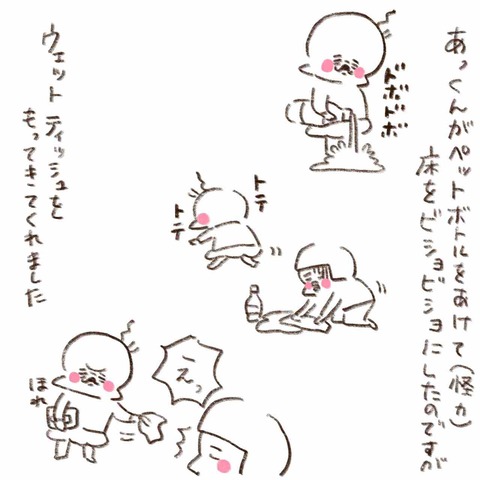 あっくんがペットボトルをあけて(怪力)
床をビショビショにしたのですが
ドボドボ
トテ
トテ
えっ
ウェットティッシュを
もってきてくれました
ほれ